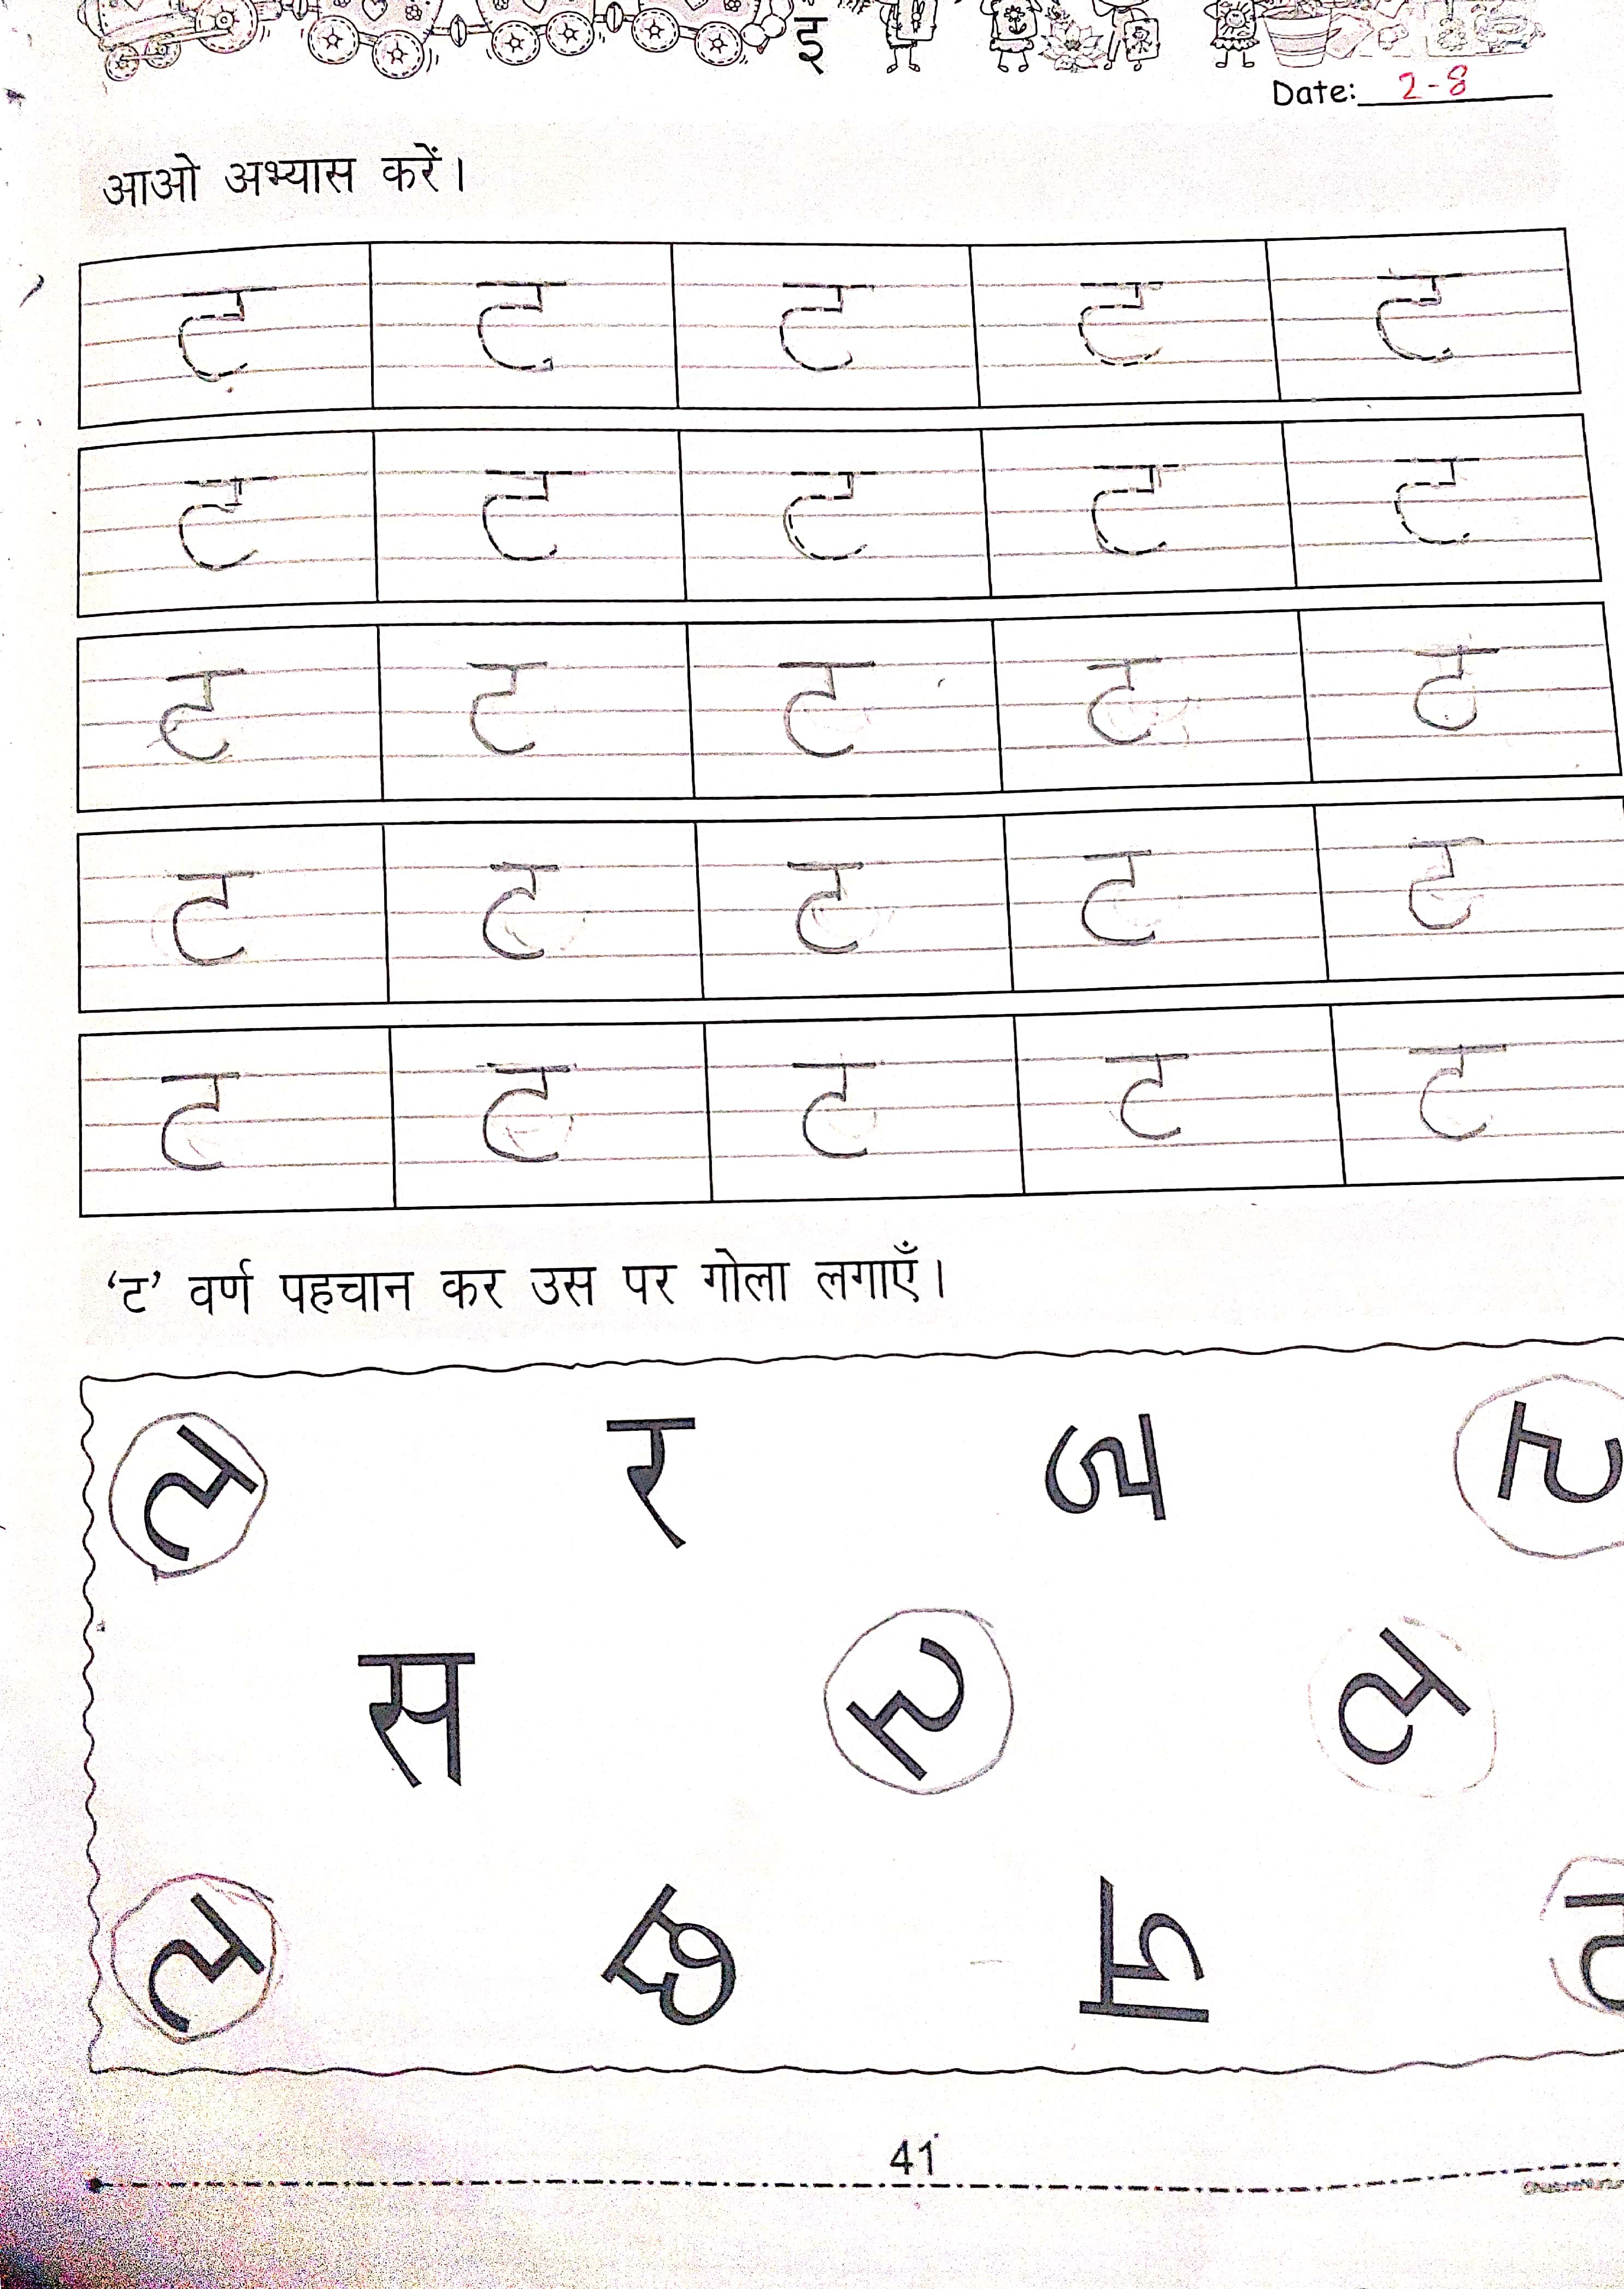 इ
Date: 2-8
आओ अभ्यास करें।
ट ट ट ट ट
ट ट ट ट ट
ट ट ट ट ट
ट ट ट ट ट
ट ट ट ट ट
‘ट’ वर्ण पहचान कर उस पर गोला लगाएँ।
ट र ज ट
स ट ट
ट छ ज ट
41